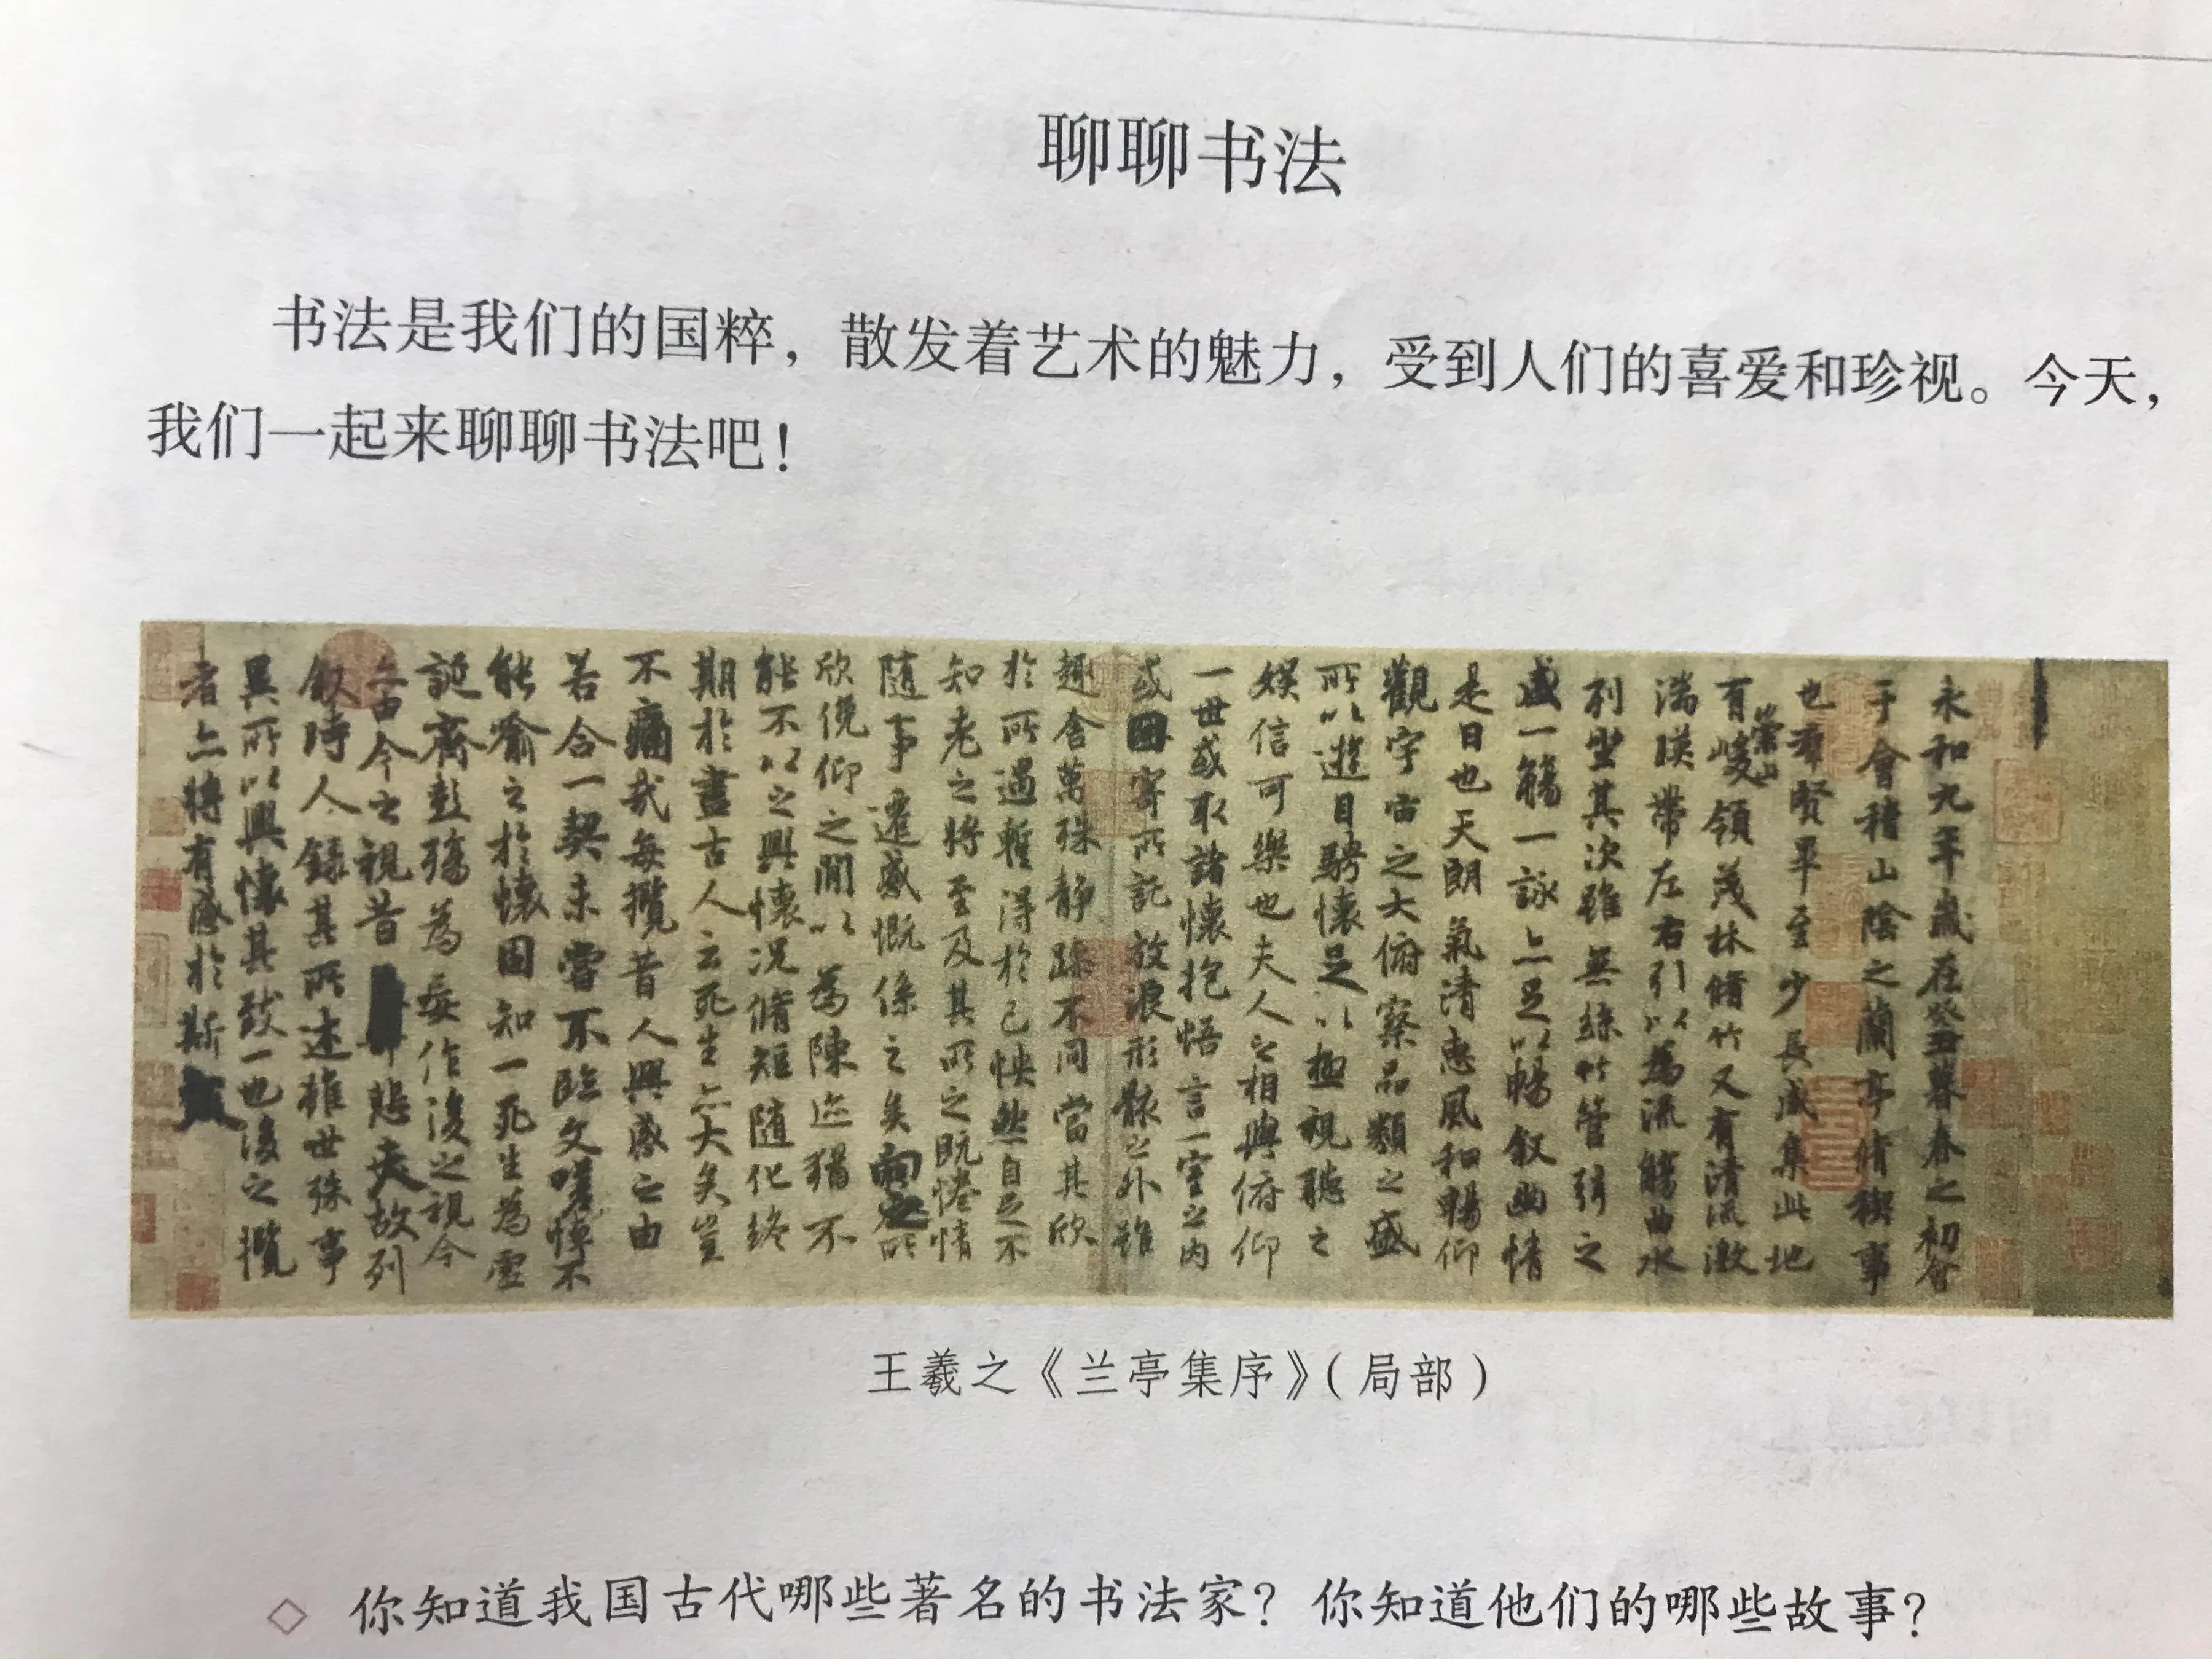 聊聊书法
书法是我们的国粹，散发着艺术的魅力，受到人们的喜爱和珍视。今天，
我们一起来聊聊书法吧！
永和九年歲在癸丑暮春之初會
于會稽山陰之蘭亭脩禊事
也羣賢畢至少長咸集此地
有崇山峻領茂林脩竹又有清流激
湍暎帶左右引以為流觴曲水
列坐其次雖無絲竹管弦之
盛一觴一詠亦足以暢叙幽情
是日也天朗氣清惠風和暢仰
觀宇宙之大俯察品類之盛
所以遊目騁懷足以極視聽之
娛信可樂也夫人之相與俯仰
一世或取諸懷抱悟言一室之內
或因寄所託放浪形骸之外雖
趣舍萬殊靜躁不同當其欣
於所遇暫得於己怏然自足不
知老之將至及其所之既惓情
隨事遷感慨係之矣向之所
欣俛仰之間以為陳迹猶不
能不以之興懷況脩短隨化終
期於盡古人云死生亦大矣豈
不痛哉每攬昔人興感之由
若合一契未嘗不臨文嗟悼不
能喻之於懷固知一死生為虛
誕齊彭殤為妄作後之視今
亦由今之視昔悲夫故列
叙時人錄其所述雖世殊事
異所以興懷其致一也後之攬
者亦將有感於斯文
王羲之《兰亭集序》（局部）
◇ 你知道我国古代哪些著名的书法家？你知道他们的哪些故事？